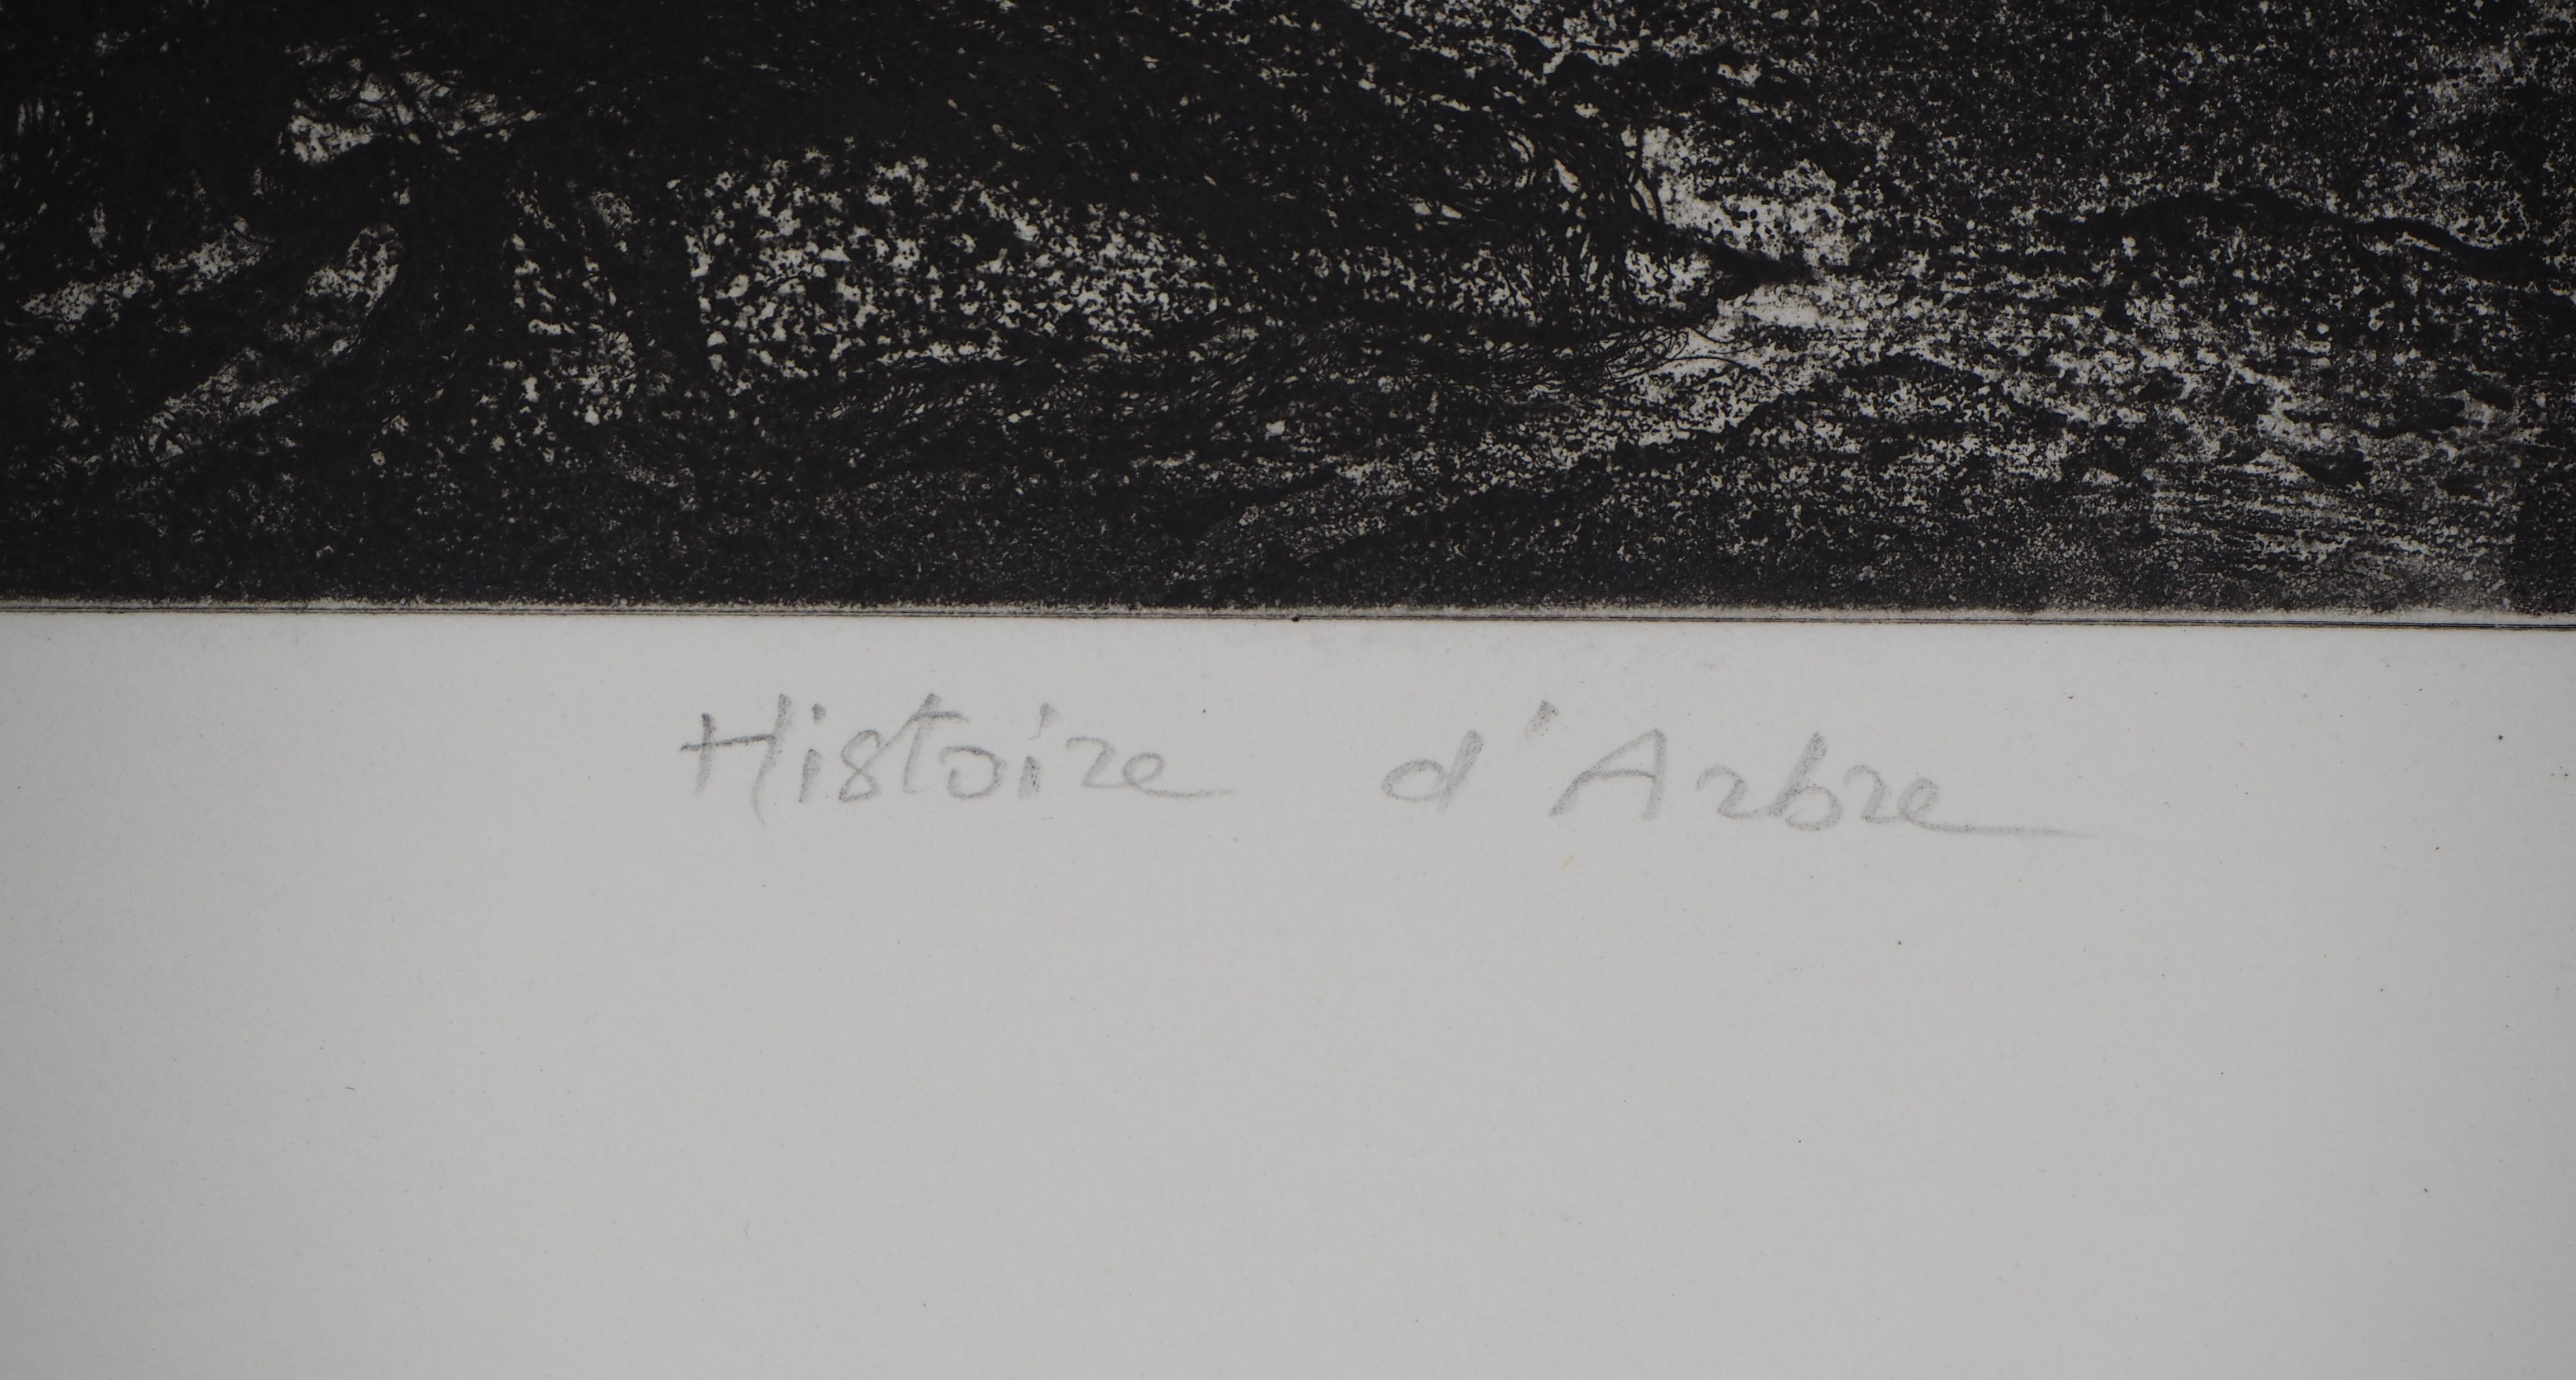 Histoire d'Arbre